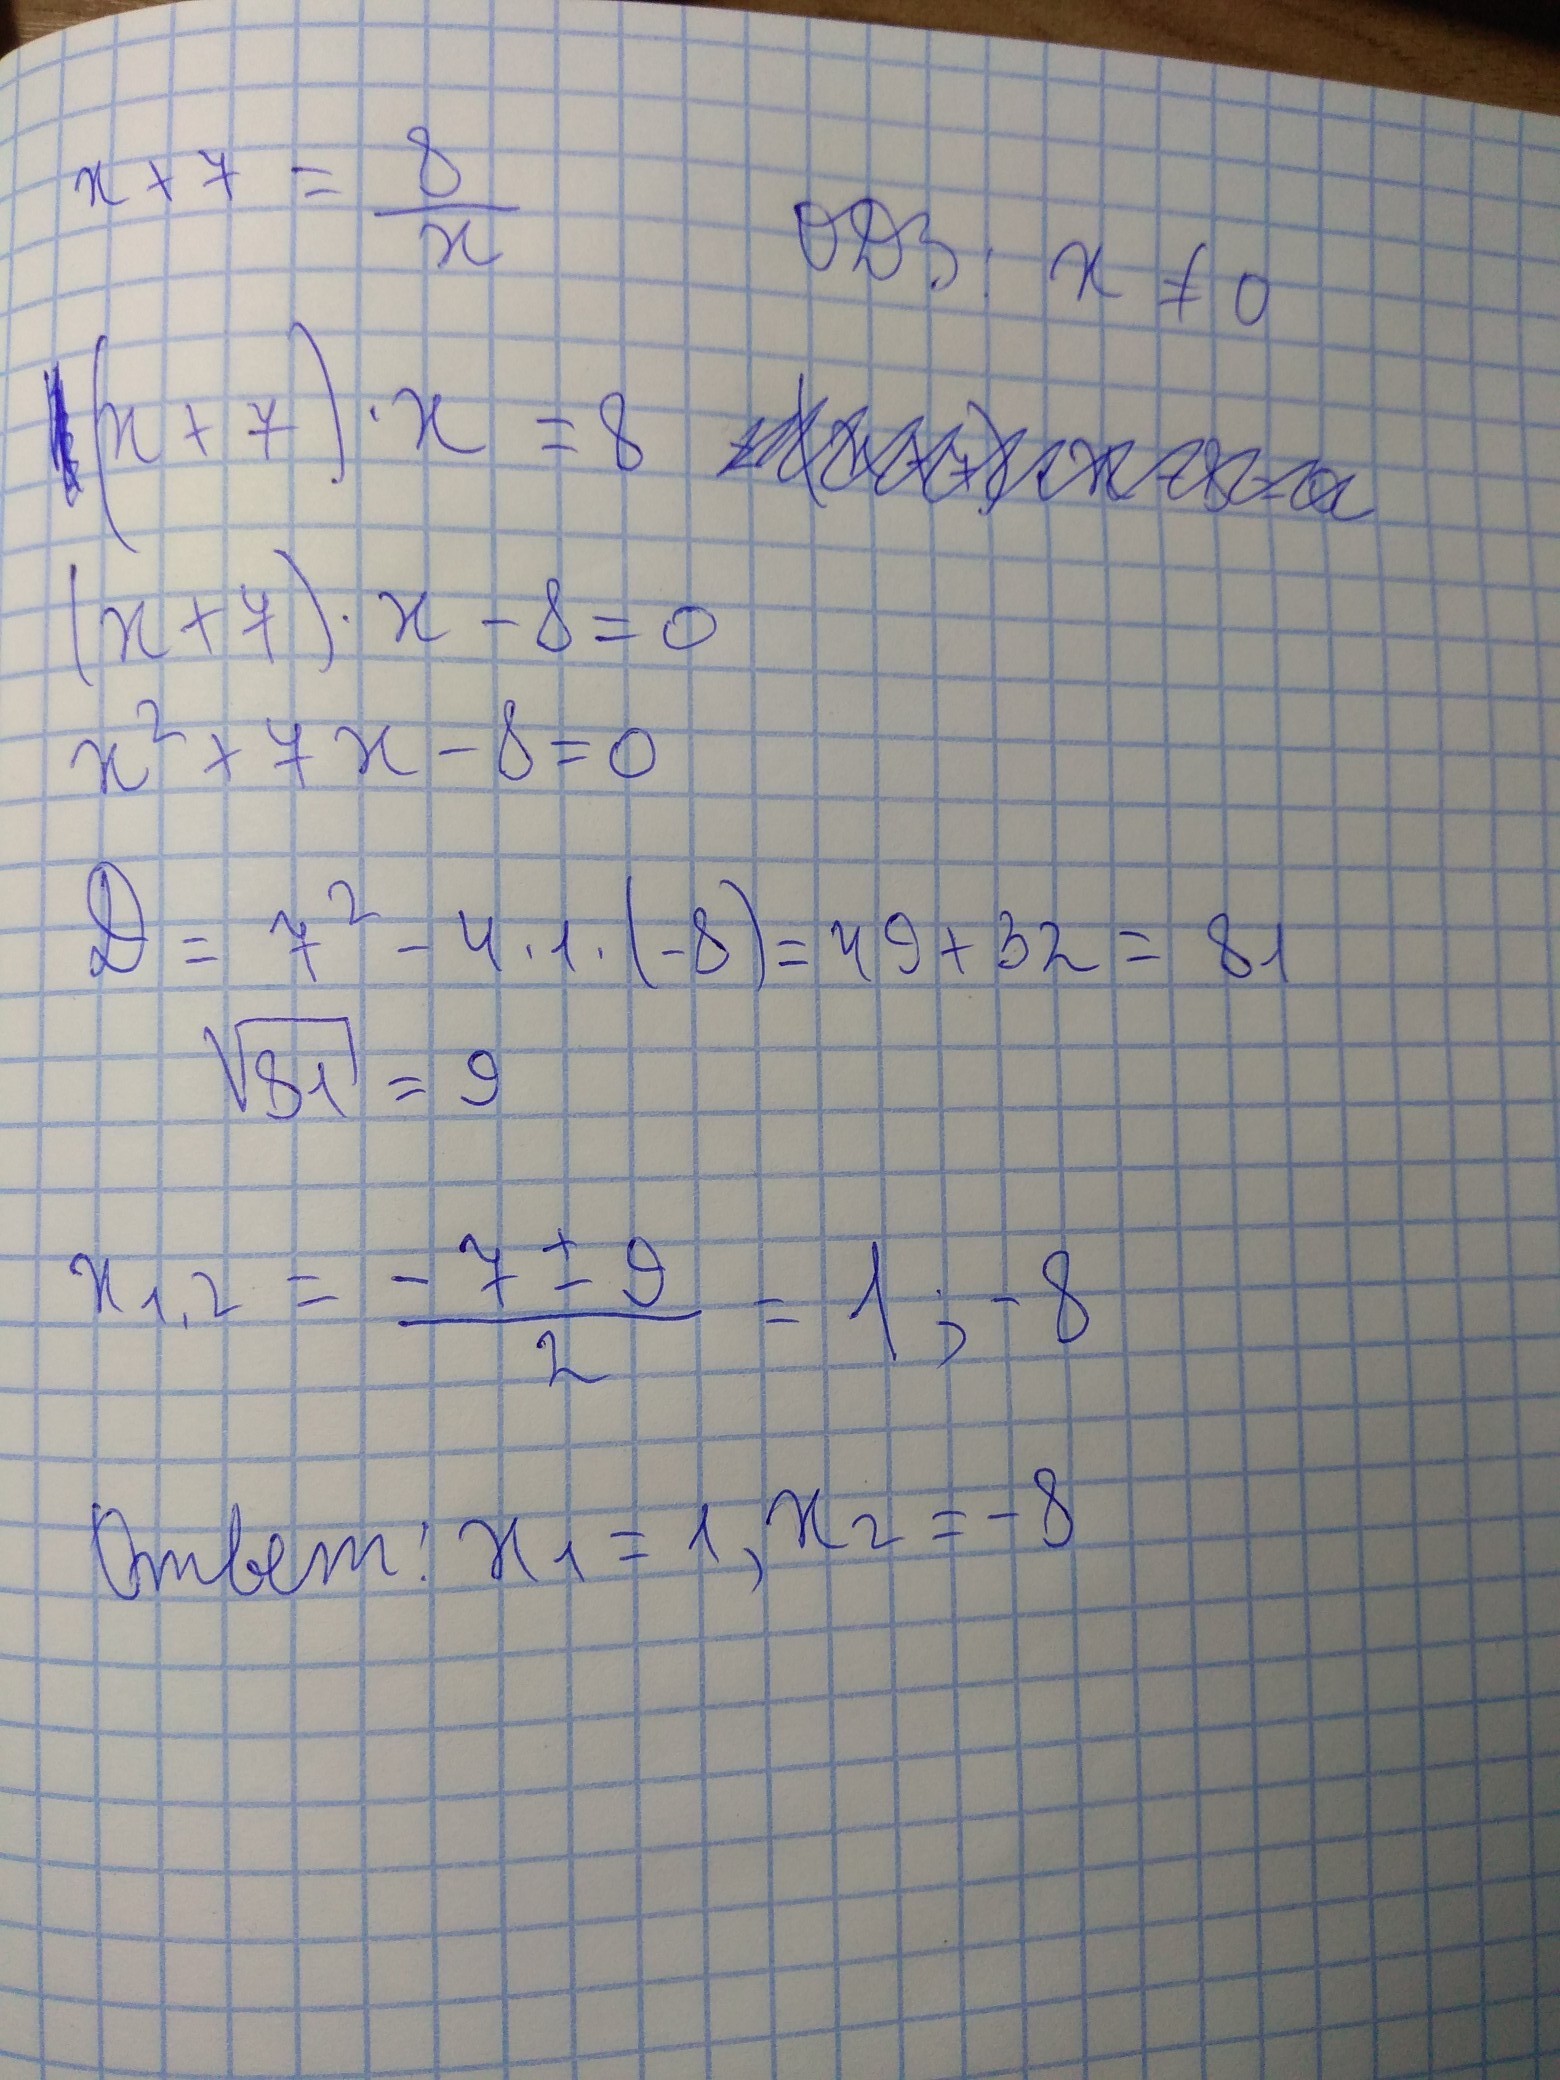 x + 7 = 8/x
ОДЗ: x ≠ 0
(x + 7) · x = 8
(x + 7) · x - 8 = 0
x² + 7x - 8 = 0
D = 7² - 4 · 1 · (-8) = 49 + 32 = 81
√81 = 9
x₁,₂ = (-7 ± 9)/2 = 1; -8
Ответ: x₁ = 1, x₂ = -8